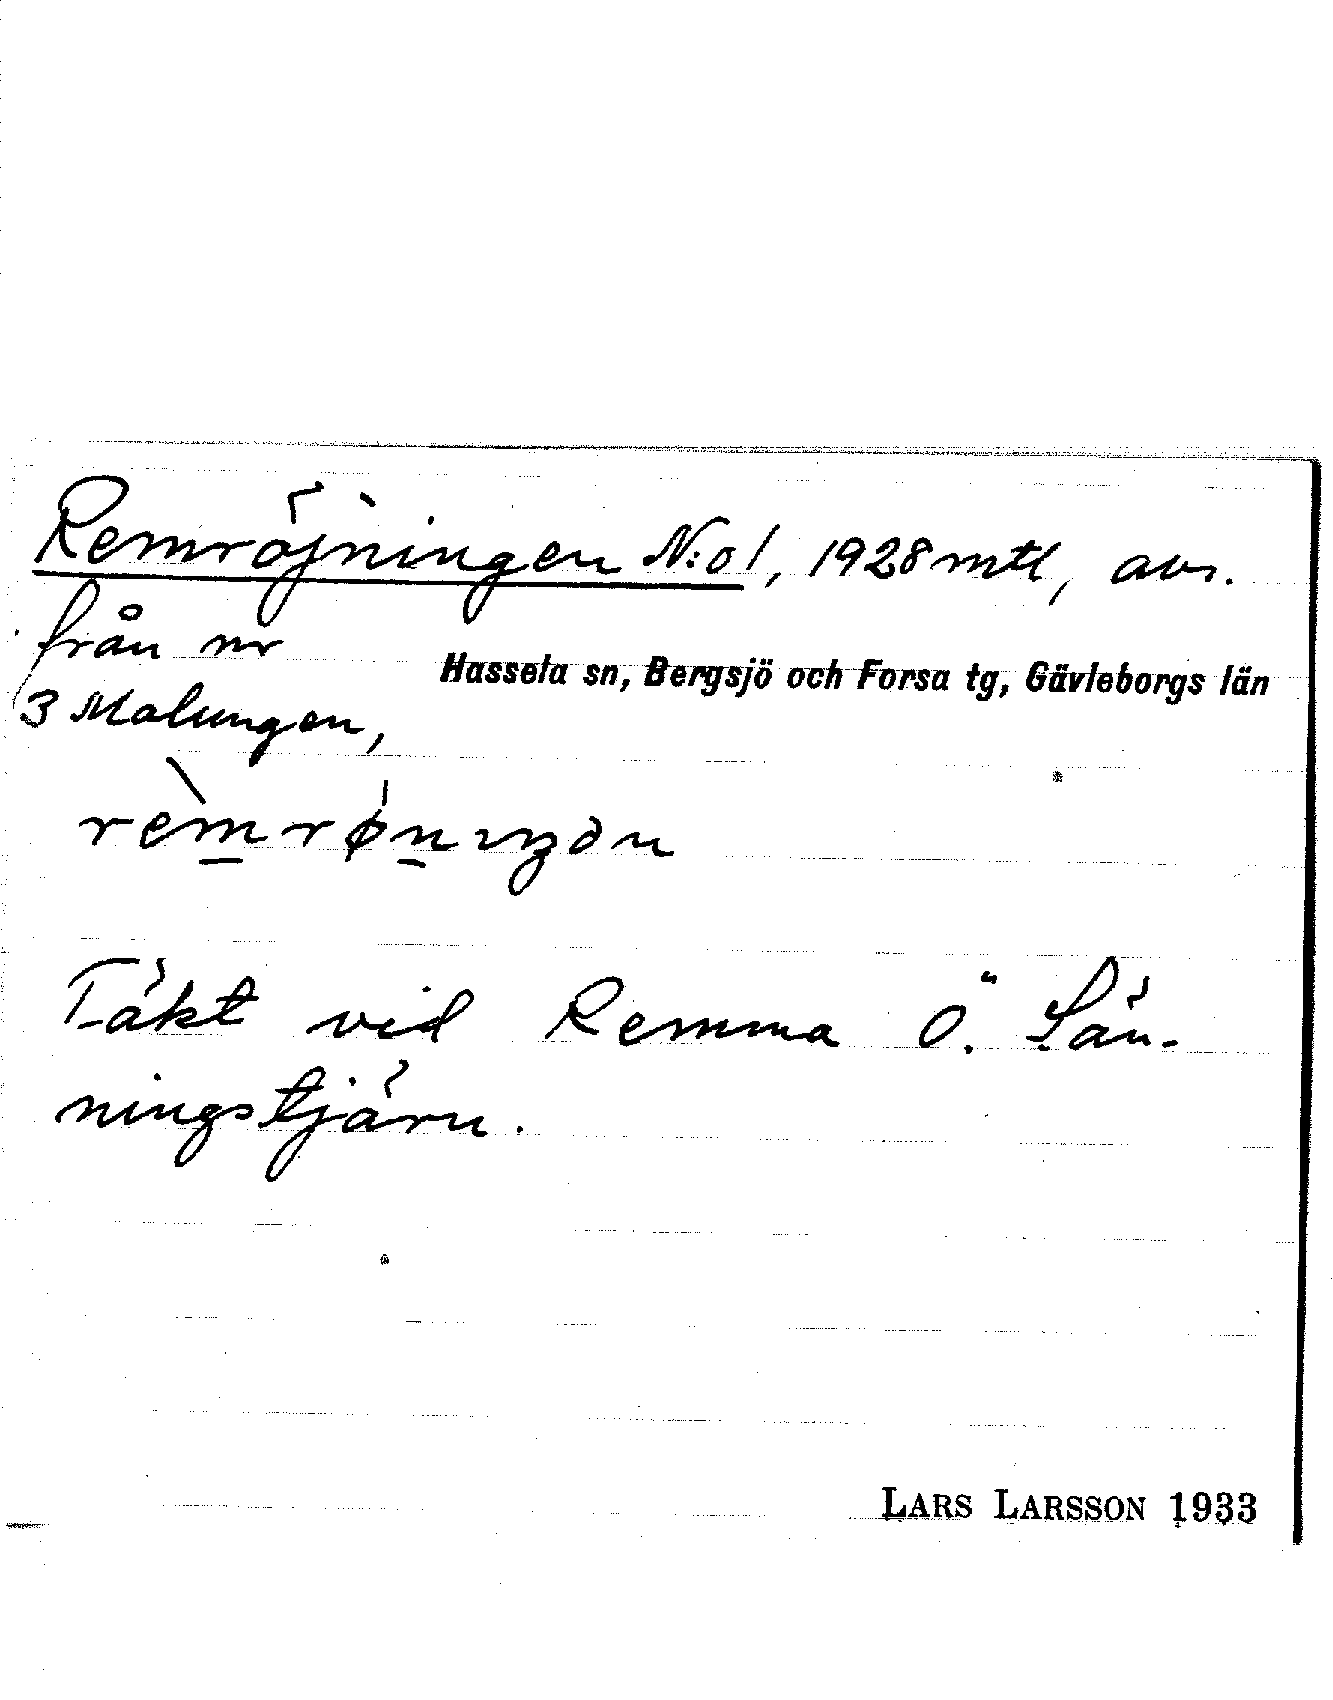 Remröjningen N:o 1, 1928 mtl, avs.
från nr
Hassela sn, Bergsjö och Forsa tg, Gävleborgs län
3 Malungen,
rèm̲røn̲ıŋən
Täkt vid Remma Ö. Län-
ningstjärn.
LARS LARSSON 1933